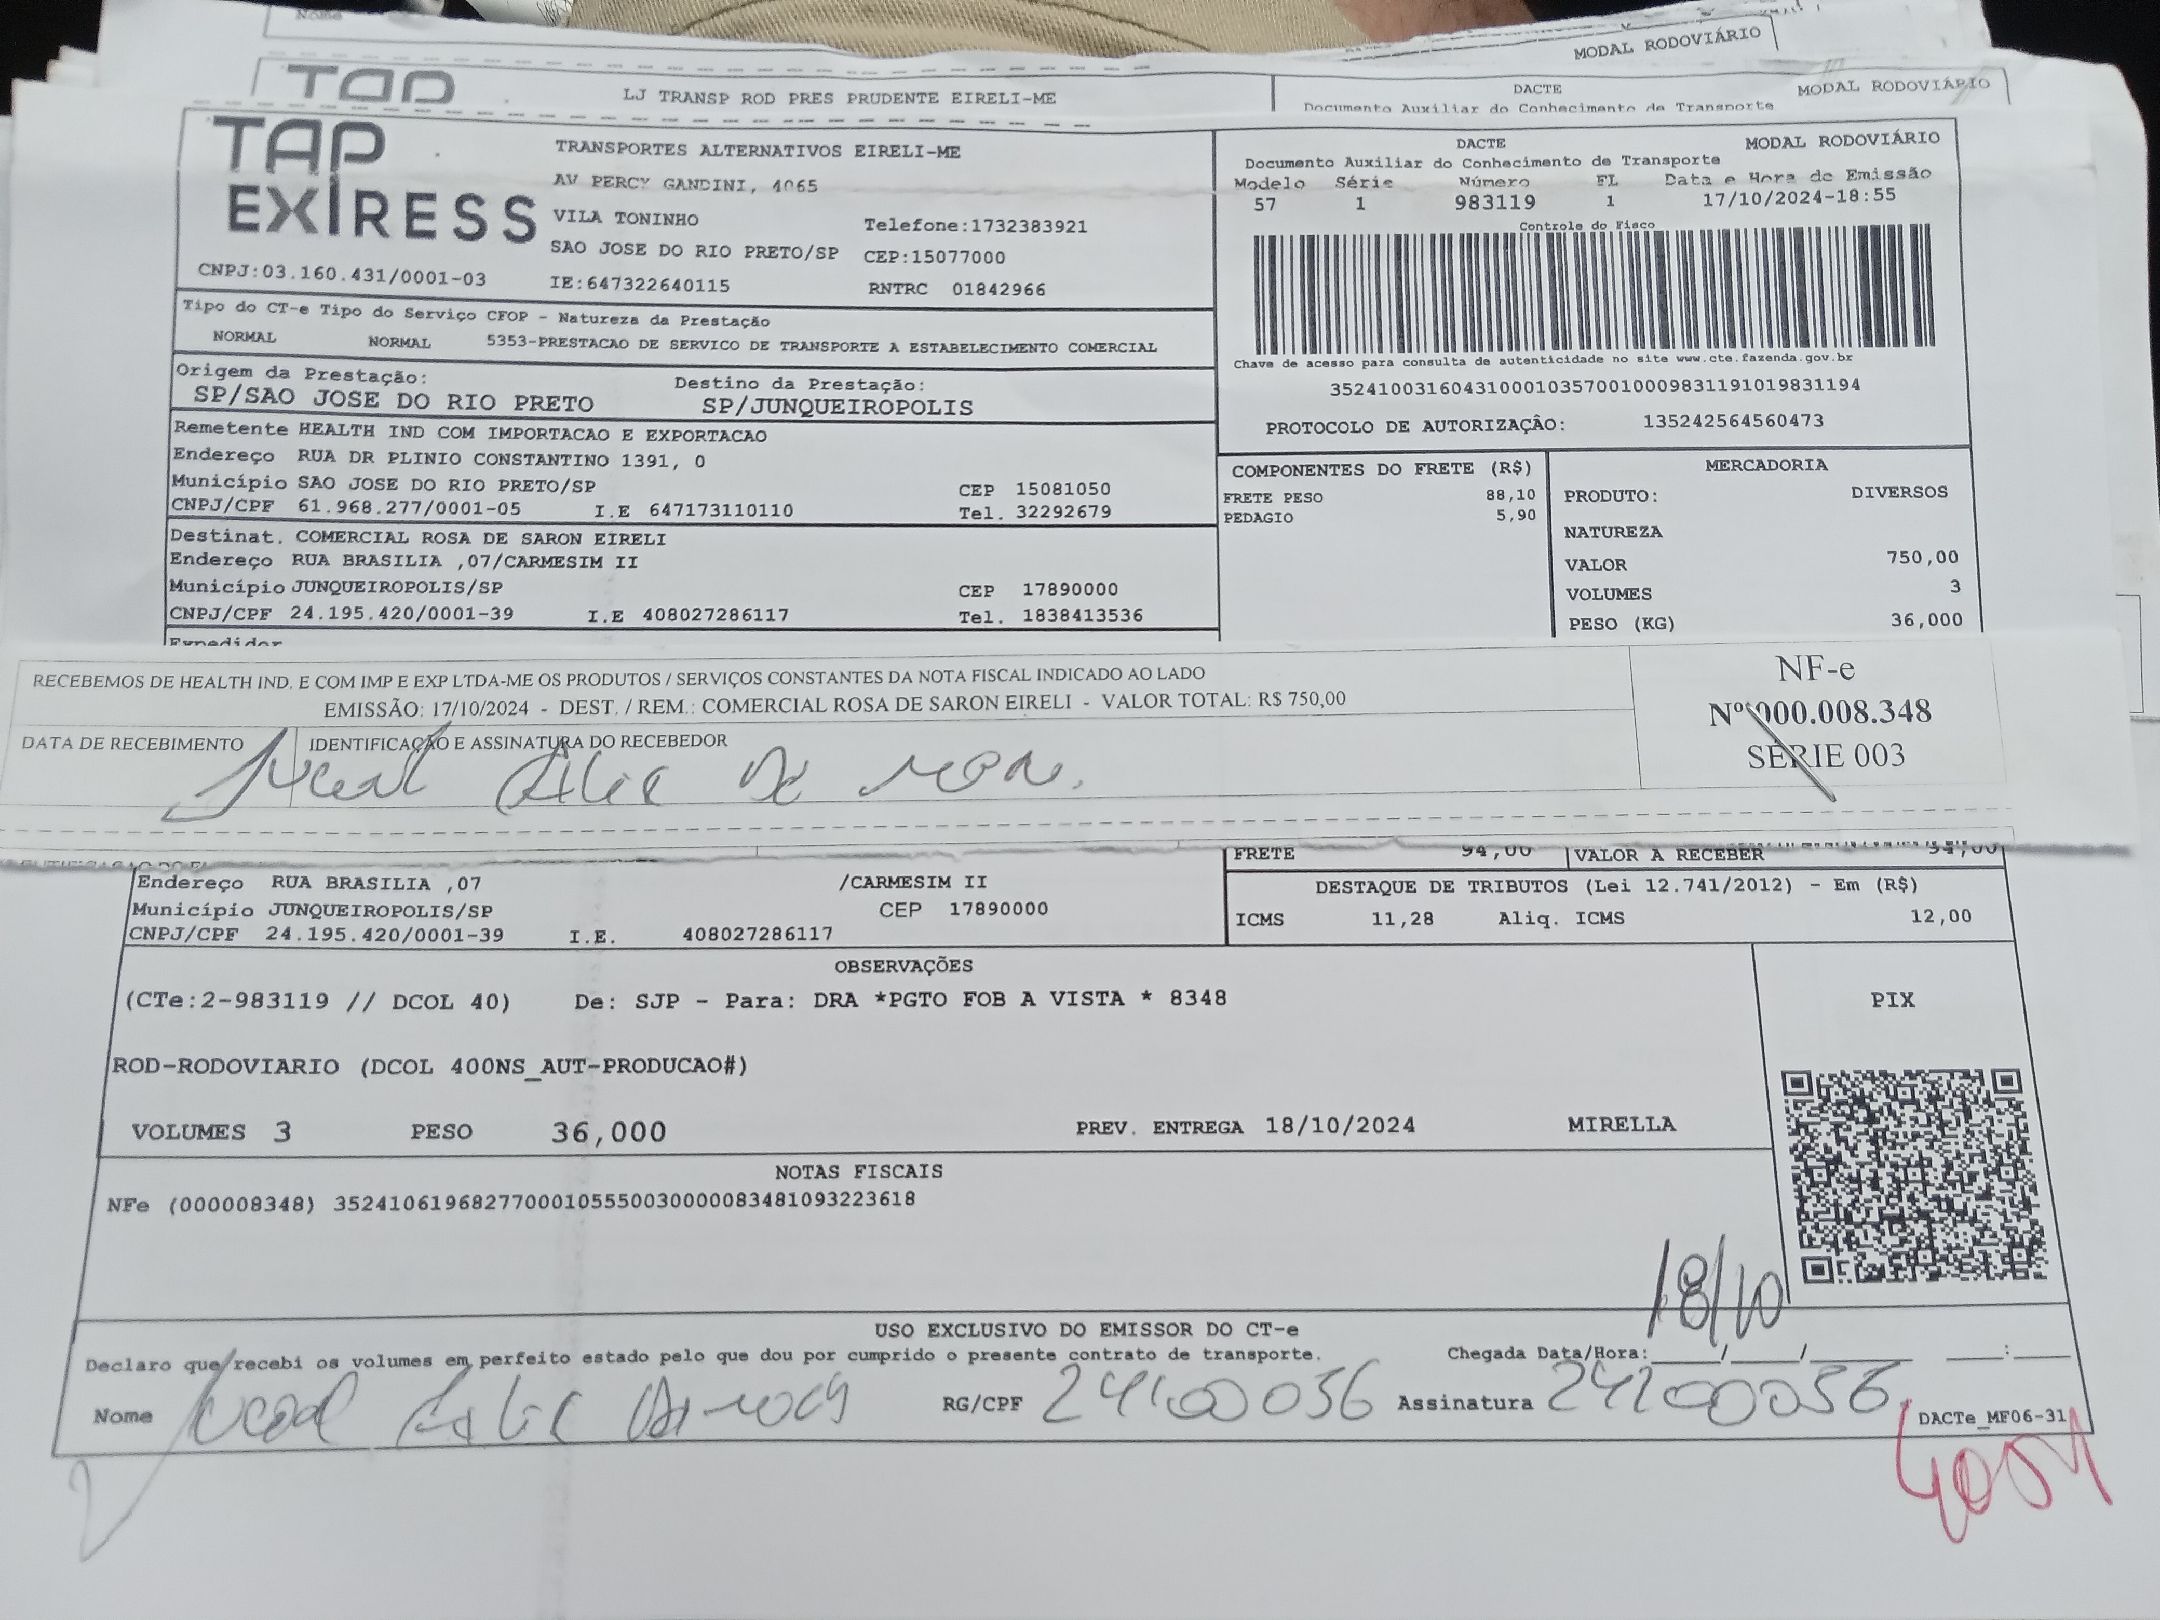 Nome
MODAL RODOVIÁRIO
TAP
LJ TRANSP ROD PRES PRUDENTE EIRELI-ME
DACTE
MODAL RODOVIÁRIO
Documento Auxiliar do Conhecimento de Transporte
TAP EXPRESS
CNPJ:03.160.431/0001-03
TRANSPORTES ALTERNATIVOS EIRELI-ME
AV PERCY GANDINI, 4065
VILA TONINHO Telefone:1732383921
SAO JOSE DO RIO PRETO/SP CEP:15077000
IE:647322640115 RNTRC 01842966
DACTE MODAL RODOVIÁRIO
Documento Auxiliar do Conhecimento de Transporte
Modelo Série Número FL Data e Hora de Emissão
57 1 983119 1 17/10/2024-18:55
Controle do Fisco
Chave de acesso para consulta de autenticidade no site www.cte.fazenda.gov.br
35241003160431000103570010009831191019831194
PROTOCOLO DE AUTORIZAÇÂO: 135242564560473
Tipo do CT-e Tipo do Serviço CFOP - Natureza da Prestação
NORMAL NORMAL 5353-PRESTACAO DE SERVICO DE TRANSPORTE A ESTABELECIMENTO COMERCIAL
Origem da Prestação: Destino da Prestação:
SP/SAO JOSE DO RIO PRETO SP/JUNQUEIROPOLIS
Remetente HEALTH IND COM IMPORTACAO E EXPORTACAO
Endereço RUA DR PLINIO CONSTANTINO 1391, 0
Município SAO JOSE DO RIO PRETO/SP CEP 15081050
CNPJ/CPF 61.968.277/0001-05 I.E 647173110110 Tel. 32292679
Destinat. COMERCIAL ROSA DE SARON EIRELI
Endereço RUA BRASILIA ,07/CARMESIM II
Município JUNQUEIROPOLIS/SP CEP 17890000
CNPJ/CPF 24.195.420/0001-39 I.E 408027286117 Tel. 1838413536
Expedidor
COMPONENTES DO FRETE (R$)
FRETE PESO 88,10
PEDAGIO 5,90
MERCADORIA
PRODUTO: DIVERSOS
NATUREZA
VALOR 750,00
VOLUMES 3
PESO (KG) 36,000
RECEBEMOS DE HEALTH IND. E COM IMP E EXP LTDA-ME OS PRODUTOS / SERVIÇOS CONSTANTES DA NOTA FISCAL INDICADO AO LADO
EMISSÃO: 17/10/2024 - DEST. / REM.: COMERCIAL ROSA DE SARON EIRELI - VALOR TOTAL: R$ 750,00
DATA DE RECEBIMENTO IDENTIFICAÇÃO E ASSINATURA DO RECEBEDOR
NF-e
Nº 000.008.348
SÉRIE 003
FRETE 94,00 VALOR A RECEBER 94,00
Endereço RUA BRASILIA ,07 /CARMESIM II
Município JUNQUEIROPOLIS/SP CEP 17890000
CNPJ/CPF 24.195.420/0001-39 I.E. 408027286117
DESTAQUE DE TRIBUTOS (Lei 12.741/2012) - Em (R$)
ICMS 11,28 Aliq. ICMS 12,00
OBSERVAÇÕES
(CTe:2-983119 // DCOL 40) De: SJP - Para: DRA *PGTO FOB A VISTA * 8348
ROD-RODOVIARIO (DCOL 400NS_AUT-PRODUCAO#)
VOLUMES 3 PESO 36,000 PREV. ENTREGA 18/10/2024 MIRELLA
PIX
NOTAS FISCAIS
NFe (000008348) 35241061968277000105550030000083481093223618
18/10
USO EXCLUSIVO DO EMISSOR DO CT-e
Declaro que recebi os volumes em perfeito estado pelo que dou por cumprido o presente contrato de transporte. Chegada Data/Hora:____/____/______ ___:___
Nome RG/CPF 24100056 Assinatura 24100056
DACTe_MF06-31